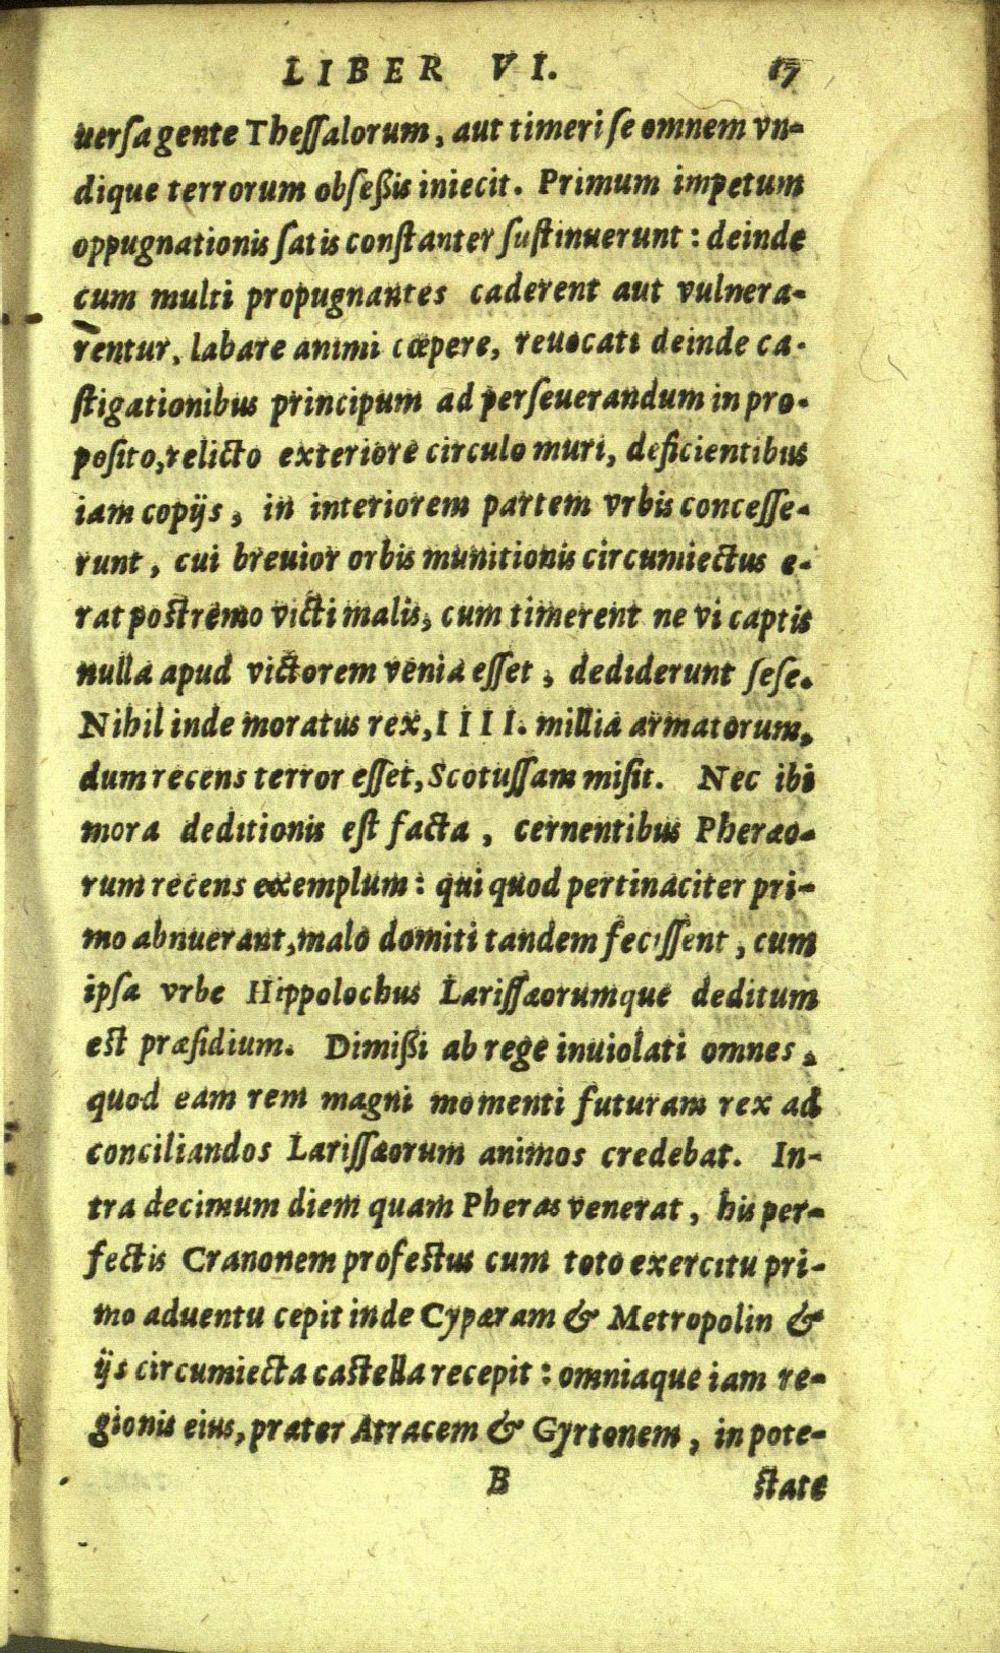 LIBER VI. 17
uerſa gente Theſſalorum, aut timeri ſe omnem vn-
dique terrorum obſeßis iniecit. Primum impetum
oppugnationis ſatis conſtanter ſuſtinuerunt: deinde
cum multi propugnantes caderent aut vulnera-
rentur, labare animi cœpere, reuocati deinde ca-
ſtigationibus principum ad perſeuerandum in pro-
poſito, relicto exteriore circulo muri, deficientibus
iam copijs, in interiorem partem vrbis conceſſe-
runt, cui breuior orbis munitionis circumiectus e-
rat poſtremo victi malis, cum timerent ne vi captis
nulla apud victorem venia eſſet, dediderunt ſeſe.
Nihil inde moratus rex, IIII. millia armatorum,
dum recens terror eſſet, Scotuſſam miſit. Nec ibi
mora deditionis eſt facta, cernentibus Pheræo-
rum recens exemplum: qui quod pertinaciter pri-
mo abnuerant, malo domiti tandem feciſſent, cum
ipſa vrbe Hippolochus Lariſſæorumque deditum
eſt præſidium. Dimißi ab rege inuiolati omnes,
quod eam rem magni momenti futuram rex ad
conciliandos Lariſſæorum animos credebat. In-
tra decimum diem quam Pheras venerat, his per-
fectis Cranonem profectus cum toto exercitu pri-
mo aduentu cepit inde Cypæram & Metropolin &
ijs circumiecta caſtella recepit: omniaque iam re-
gionis eius, præter Atracem & Gyrtonem, in pote-
B ſtate